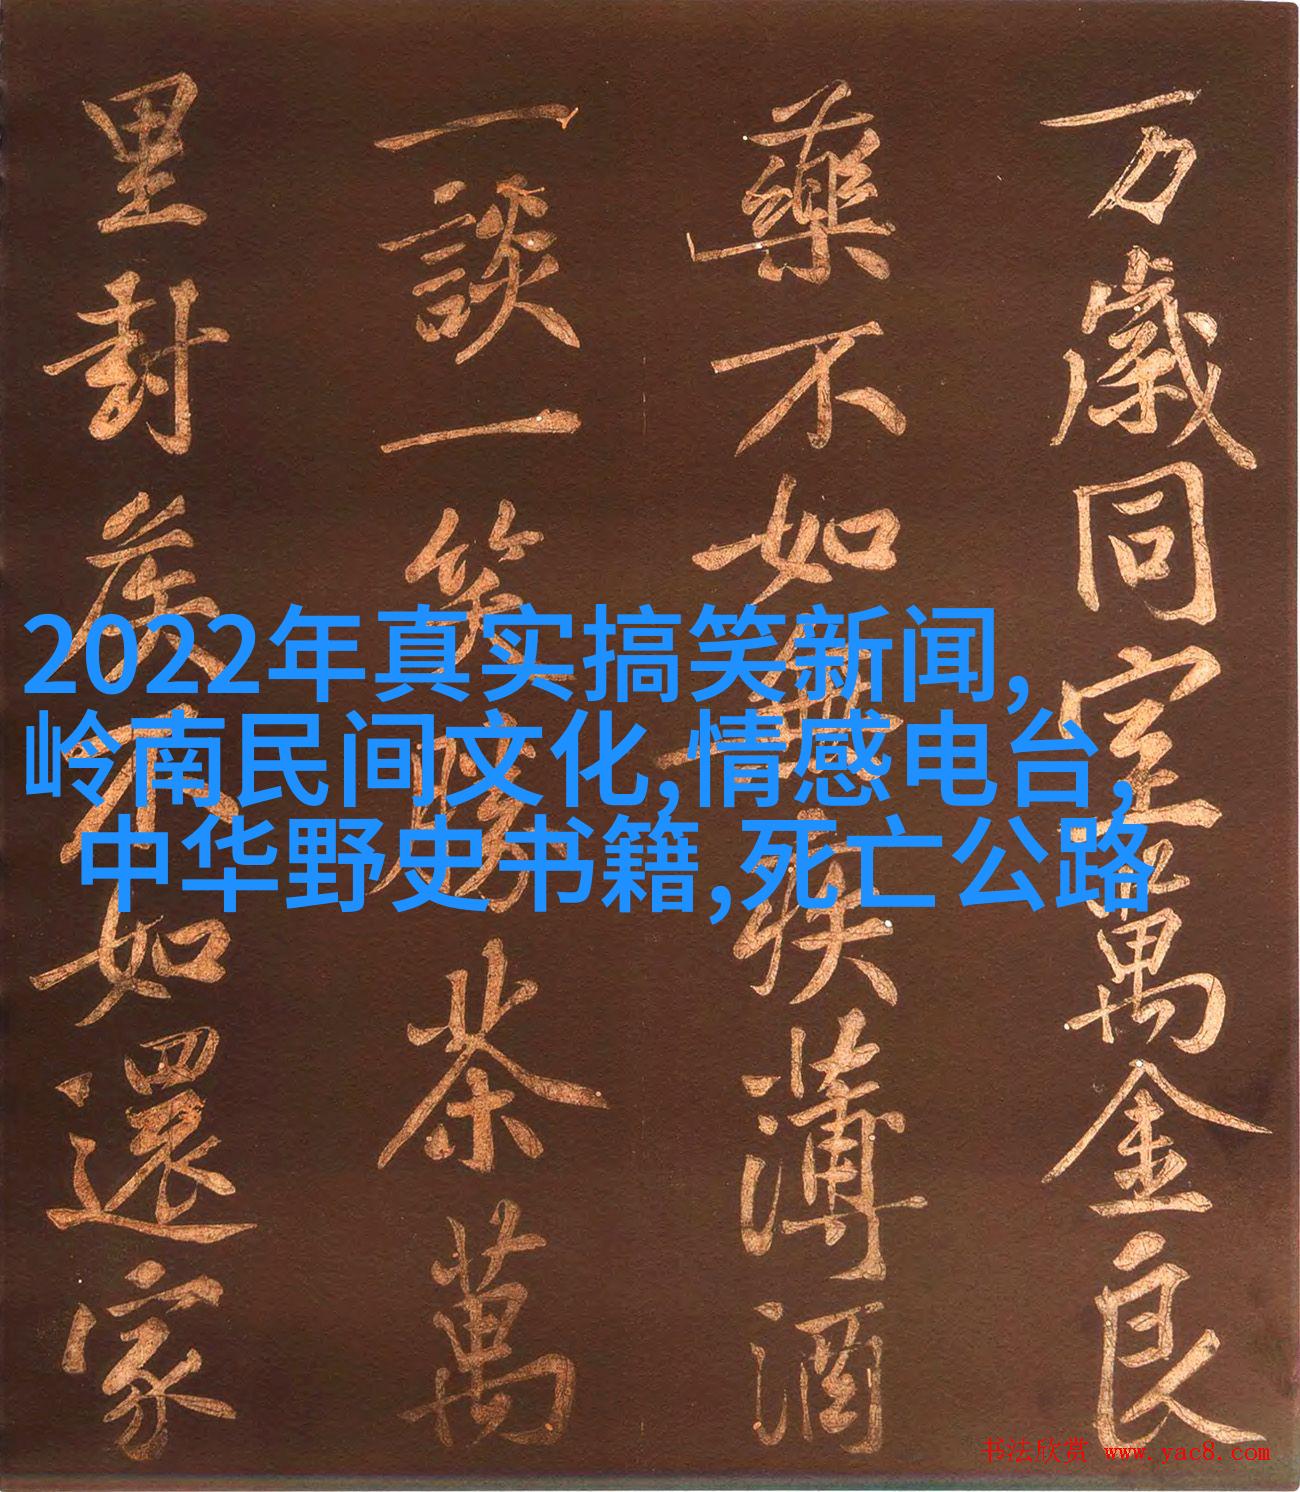 万歲同室萬金良
藥不如無疾薄酒
一談一笑勝茶萬
里封侯不如還家
2022年真实搞笑新闻,
岭南民间文化,情感电台,
中华野史书籍,死亡公路
书法欣赏 www.yac8.com